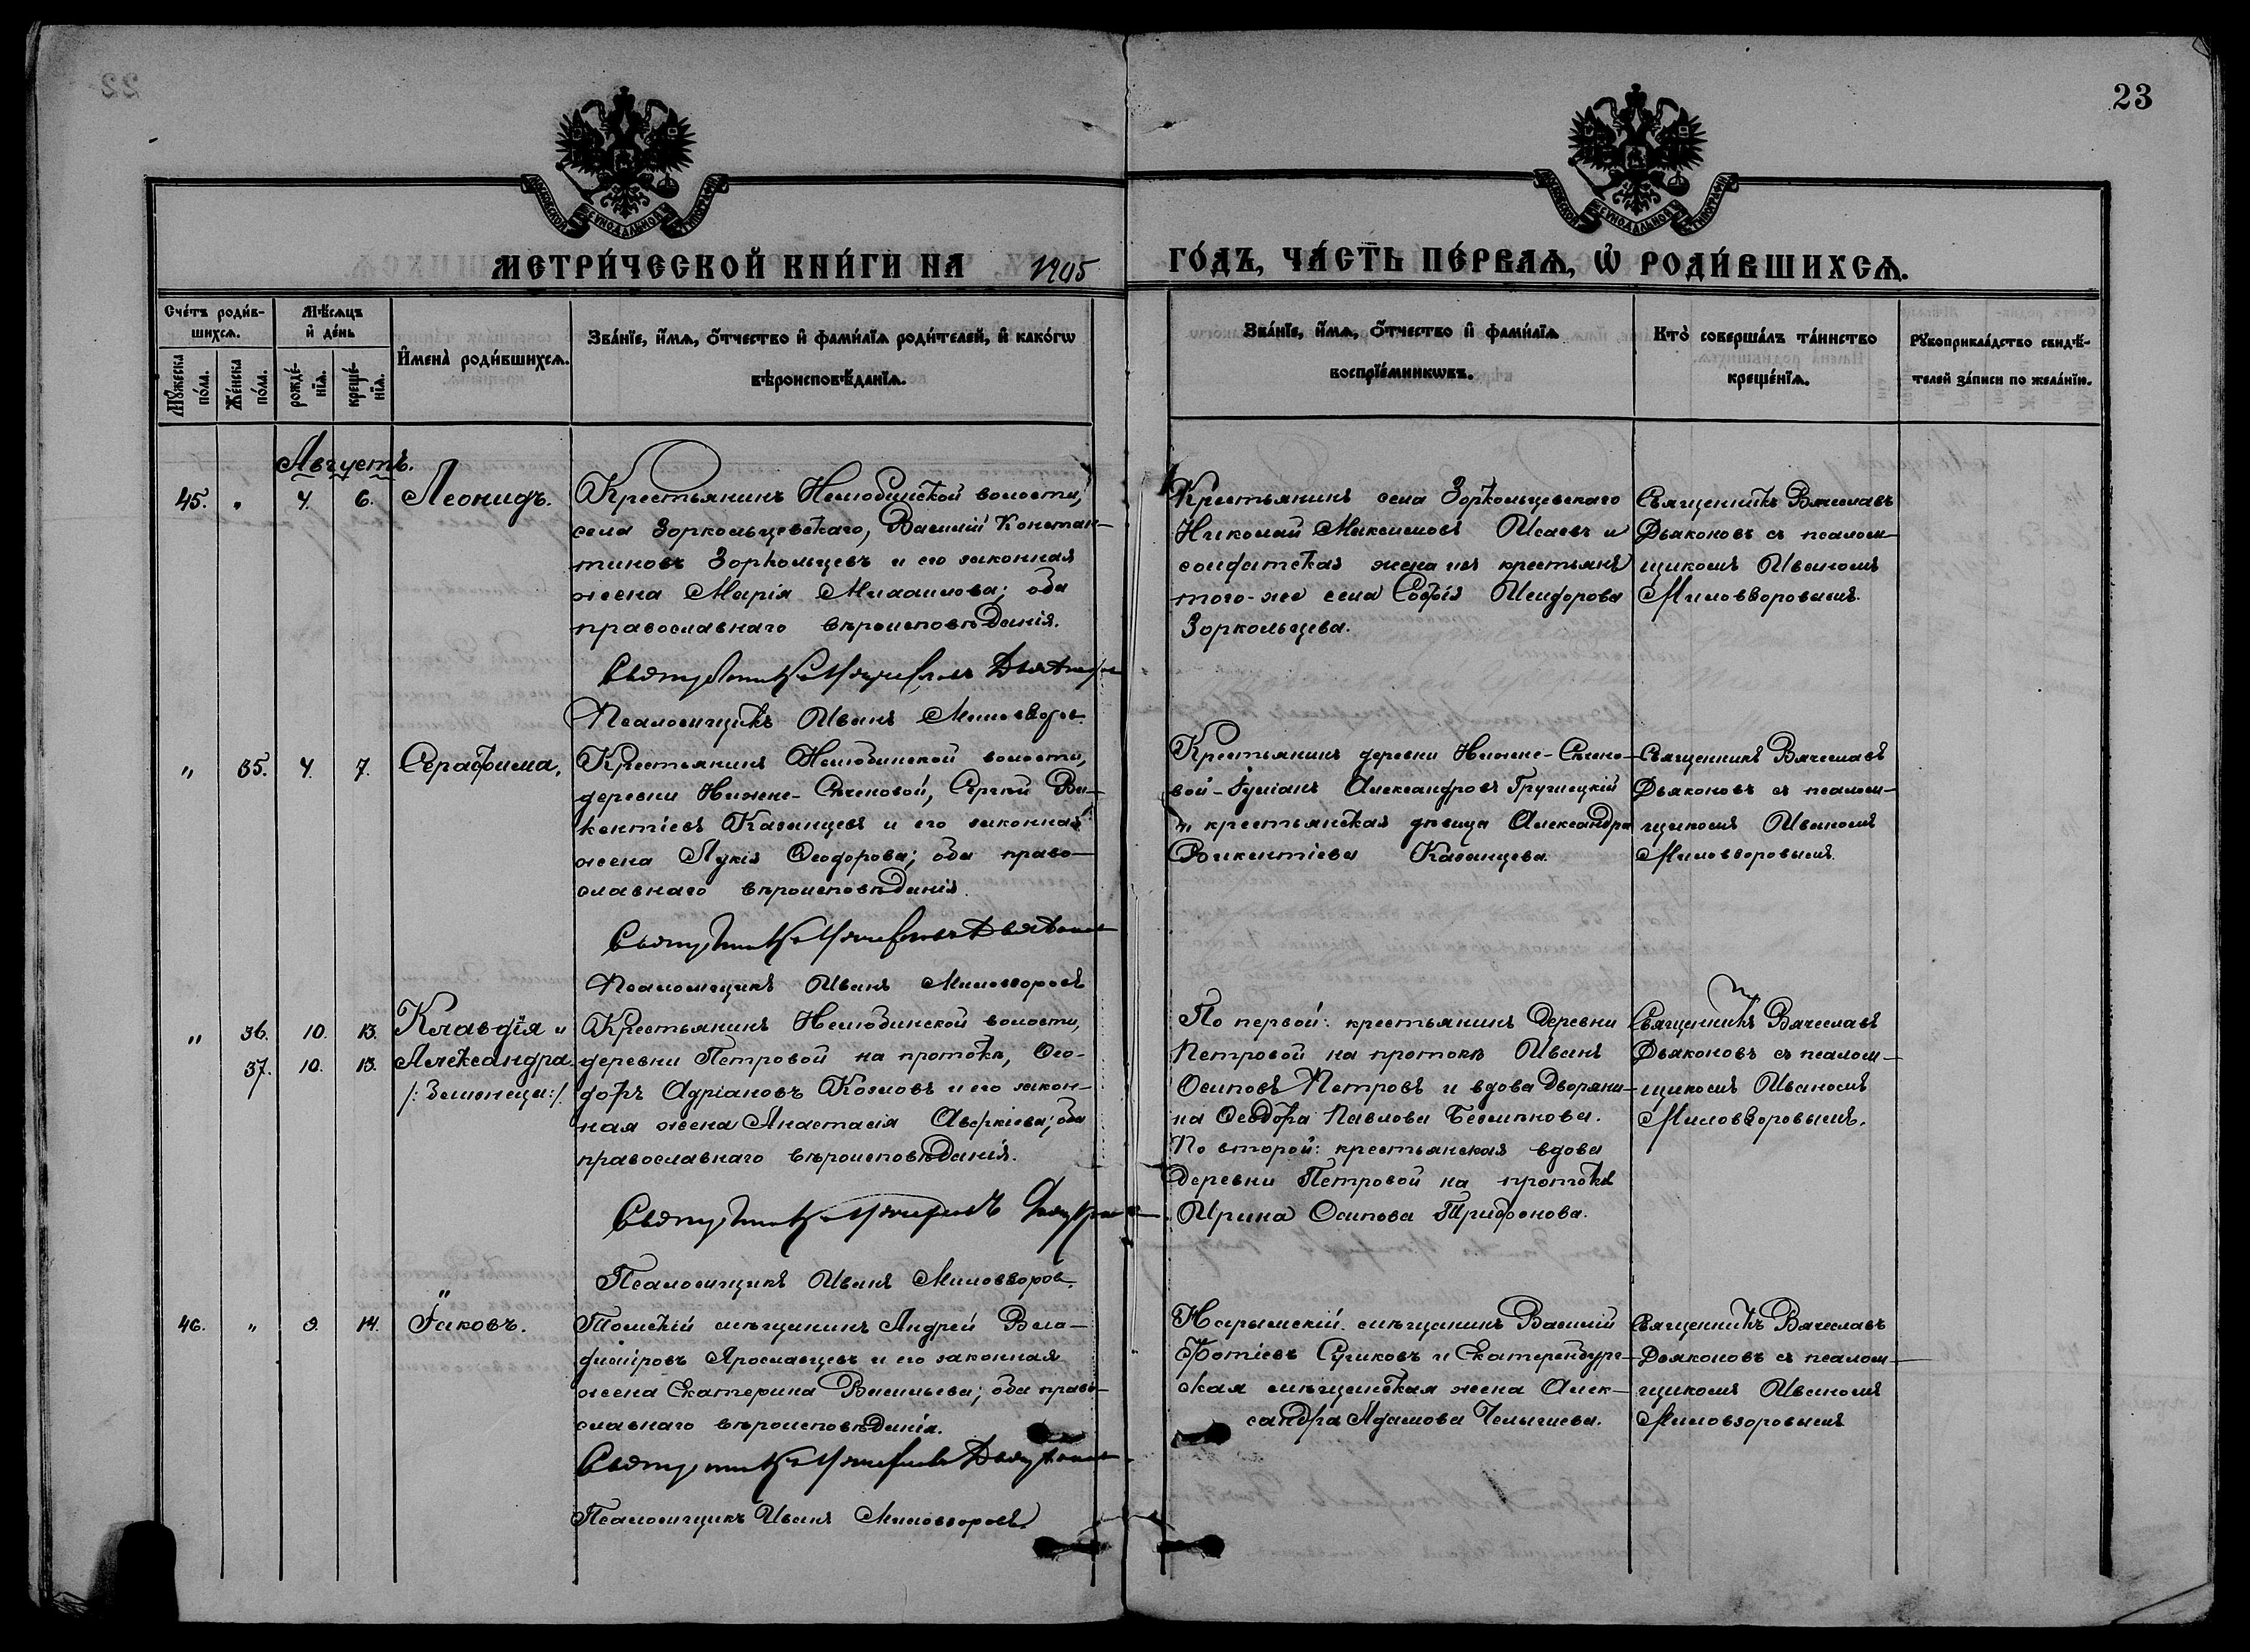 23
МЕТРИ́ЧЕСКОЙ КНИ́ГИ НА 1905 ГО́ДЪ, ЧА́СТЬ ПЕ́РВАѦ, Ѡ҆ РОДИ́ВШИХСѦ.
Сче́тъ роди́в-
шихсѧ.
Мꙋ́жеска по́ла.
Же́нска по́ла.
Мѣ́сѧцъ
и҆ де́нь
рожде́-
нїѧ.
креще́-
нїѧ.
И҆мена̀ роди́вшихсѧ.
Зва́нїе, и҆́мѧ, ѻ҆́тчество и҆ фамѝлїѧ роди́телей, и҆ како́гѡ
вѣроисповѣ́данїѧ.
Зва́нїе, и҆́мѧ, ѻ҆́тчество и҆ фамѝлїѧ
воспрїе́мникѡвъ.
Кто̀ соверша́лъ та́инство
креще́нїѧ.
Рꙋкоприкла́дство свидѣ́-
телей за́писи по жела́нїю.
Августъ.
45. " 4. 6. Леонидъ.
Крестьянинъ Нелюбинской волости,
села Зоркольцевскаго, Василій Констан-
тиновъ Зоркольцевъ и его законная
жена Марія Михаилова; оба
православнаго вѣроисповѣданія.
Священникъ Вячеславъ Дьяконовъ
Псаломщикъ Иванъ Миловзоровъ
Крестьянинъ села Зоркольцевскаго
Николай Максимовъ Исаевъ и
солдатская жена изъ крестьянъ
того-же села Софія Исидорова
Зоркольцева.
Священникъ Вячеславъ
Дьяконовъ съ псалом-
щикомъ Иваномъ
Миловзоровымъ.
" 35. 4. 7. Серафима,
Крестьянинъ Нелюбинской волости,
деревни Нижне-Сѣченовой, Сергій Ви-
кентіевъ Казанцевъ и его законная
жена Лукія Ѳеодорова; оба право-
славнаго вѣроисповѣданія.
Священникъ Вячеславъ Дьяконовъ
Псаломщикъ Иванъ Миловзоровъ
Крестьянинъ деревни Нижне-Сѣчено-
вой-Іуліанъ Александровъ
и крестьянская дѣвица Александра
Викентіева Казанцева.
Священникъ Вячеславъ
Дьяконовъ съ псалом-
щикомъ Иваномъ
Миловзоровымъ.
" 36. 10. 13. Клавдія и
37. 10. 13. Александра.
/:Близнецы:/
Крестьянинъ Нелюбинской волости,
деревни Петровой на протокѣ, Ѳео-
доръ Адріановъ Козловъ и его закон-
ная жена Анастасія Аверкіева; оба
православнаго вѣроисповѣданія.
Священникъ Вячеславъ Дьяконовъ
Псаломщикъ Иванъ Миловзоровъ.
По первой: крестьянинъ деревни
Петровой на протокѣ Иванъ
Осиповъ Петровъ и вдова дворяни-
на Ѳеодора Павлова
По второй: крестьянская вдова
деревни Петровой на протокѣ
Ирина Осипова Трифонова.
Священникъ Вячеславъ
Дьяконовъ съ псалом-
щикомъ Иваномъ
Миловзоровымъ.
46. " 9. 14. Іаковъ.
Томскій мѣщанинъ Андрей Вла-
диміровъ Ярославцевъ и его законная
жена Екатерина Васильева; оба право-
славнаго вѣроисповѣданія.
Священникъ Вячеславъ Дьяконовъ
Псаломщикъ Иванъ Миловзоровъ.
Нарымскій мѣщанинъ Василій
Фотіевъ Суриковъ и Екатеренбург-
ская мѣщанская жена Алек-
сандра Адамова Челышева.
Священникъ Вячеславъ
Дьяконовъ съ псалом-
щикомъ Иваномъ
Миловзоровымъ